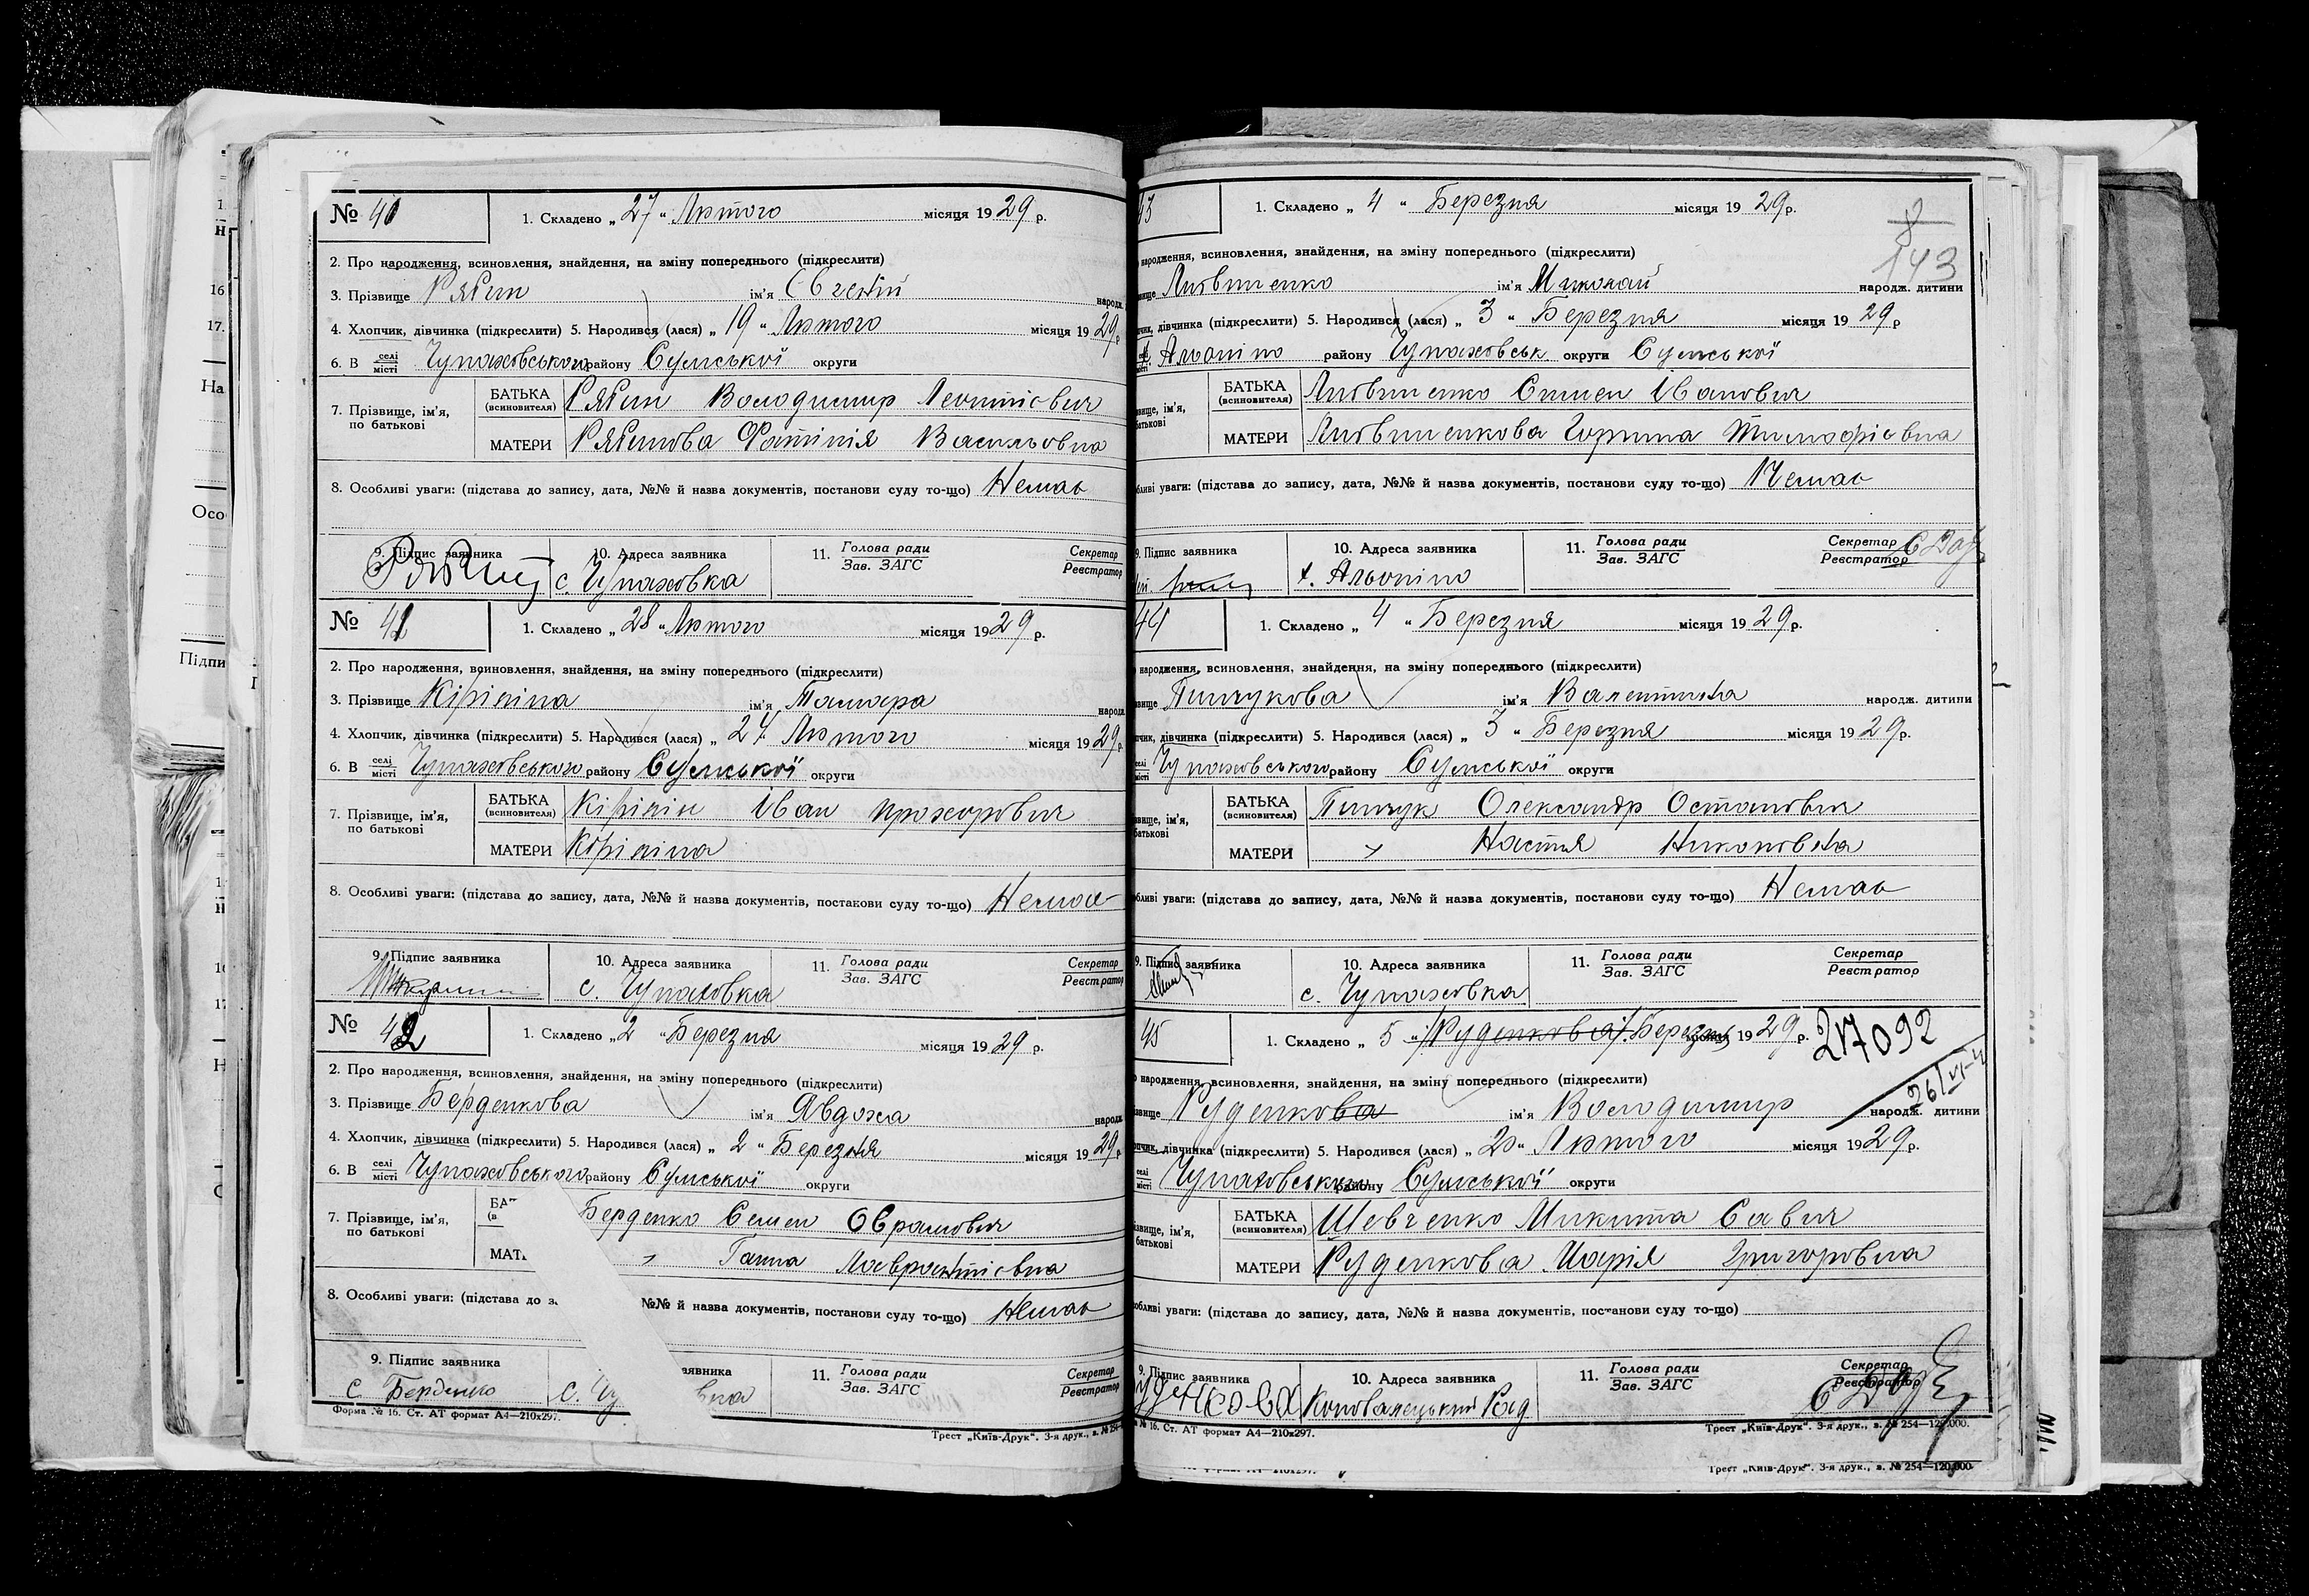 № 40 1. Складено „ 27 “ Лютого місяця 19 29 р.
2. Про народження, всиновлення, знайдення, на зміну попереднього (підкреслити)
3. Прізвище Рябин ім'я Євгеній народж.
4. Хлопчик, дівчинка (підкреслити) 5. Народився (лася) „ 19 “ Лютого місяця 19 29 р
6. В селі місті Чупаховського району Сумської округи
7. Прізвище, ім'я, по батькові
БАТЬКА (всиновителя) Рябин Володимир Леонтієвич
МАТЕРИ Рябинова Фатинія Васильовна
8. Особливі уваги: (підстава до запису, дата, №№ й назва документів, постанови суду то-що) Немає
9. Підпис заявника 10. Адреса заявника 11. Голова ради Зав. ЗАГС Секретар Реєстратор
с. Чупаховка
№ 41 1. Складено „ 28 “ Лютого місяця 19 29 р.
2. Про народження, всиновлення, знайдення, на зміну попереднього (підкреслити)
3. Прізвище ім'я Тамара народж.
4. Хлопчик, дівчинка (підкреслити) 5. Народився (лася) „ 24 Лютого місяця 19 29 р
6. В селі місті Чупаховського району Сумської округи
7. Прізвище, ім'я, по батькові
БАТЬКА (всиновителя) Іван Прохорович
МАТЕРИ
8. Особливі уваги: (підстава до запису, дата, №№ й назва документів, постанови суду то-що) Немає
9. Підпис заявника 10. Адреса заявника 11. Голова ради Зав. ЗАГС Секретар Реєстратор
с. Чупаховка
№ 42 1. Складено „ 2 “ Березня місяця 19 29 р.
2. Про народження, всиновлення, знайдення, на зміну попереднього (підкреслити)
3. Прізвище Берденкова ім'я Явдоха народж
4. Хлопчик, дівчинка (підкреслити) 5. Народився (лася) „ 2 “ Березня місяця 19 29 р
6. В селі місті Чупаховського району Сумської округи
7. Прізвище, ім'я, по батькові
Берденко Семен Оврамович
МАТ " Ганна Лаврентієвна
8. Особливі уваги: (підстава до з №№ й назва документів, постанови суду то-що) Немає
9. Підпис заявника заявника 11. Голова ради Зав. ЗАГС Секретар Реєстратор
С Берденко с. Чу вка
Форма № 16. Ст. АТ формат А4—210х297.
Трест „Київ-Друк“. 3-я друк., з. № 254
43 1. Складено „ 4 “ Березня місяця 19 29 р.
143
народження, всиновлення, знайдення, на зміну попереднього (підкреслити)
Литвиненко ім'я Миколай народж. дитини
дівчинка (підкреслити) 5. Народився (лася) „ 3 “ Березня місяця 19 29 р
району Чупаховськ округи Сумської
БАТЬКА (всиновителя) Литвиненко Семен Іванович
МАТЕРИ Литвиненкова Горпина Тимофієвна
уваги: (підстава до запису, дата, №№ й назва документів, постанови суду то-що) Немає
9. Підпис заявника 10. Адреса заявника 11. Голова ради Зав. ЗАГС Секретар Реєстратор
44 1. Складено „ 4 “ Березня місяця 19 29 р.
народження, всиновлення, знайдення, на зміну попереднього (підкреслити)
Пинчукова ім'я Валентина народж. дитини
дівчинка (підкреслити) 5. Народився (лася) „ 3 “ Березня місяця 19 29 р.
Чупаховського району Сумської округи
БАТЬКА (всиновителя) Пинчук Олександр Остапович
МАТЕРИ " Настя Никоновна
уваги: (підстава до запису, дата, №№ й назва документів, постанови суду то-що) Немає
9. Підпис заявника 10. Адреса заявника 11. Голова ради Зав. ЗАГС Секретар Реєстратор
с. Чупаховка
45 1. Складено „ 5 “ /Руденкова/ Березня місяця 19 29 р. 217092
народження, всиновлення, знайдення, на зміну попереднього (підкреслити)
Руденкова ім'я Володимир народж. дитини
дівчинка (підкреслити) 5. Народився (лася) „ 20 “ Лютого місяця 19 29 р.
Чупаховського району Сумської округи
БАТЬКА (всиновителя) Шевченко Микита Савич
МАТЕРИ Руденкова Марія Григоровна
уваги: (підстава до запису, дата, №№ й назва документів, постанови суду то-що)
9. Підпис заявника 10. Адреса заявника 11. Голова ради Зав. ЗАГС Секретар Реєстратор
уденкова
№ 16. Ст. АТ формат А4—210х297.
Трест „Київ-Друк“. 3-я друк., з. № 254—120.000.
Трест „Київ-Друк“. 3-я друк., з. № 254—120.000